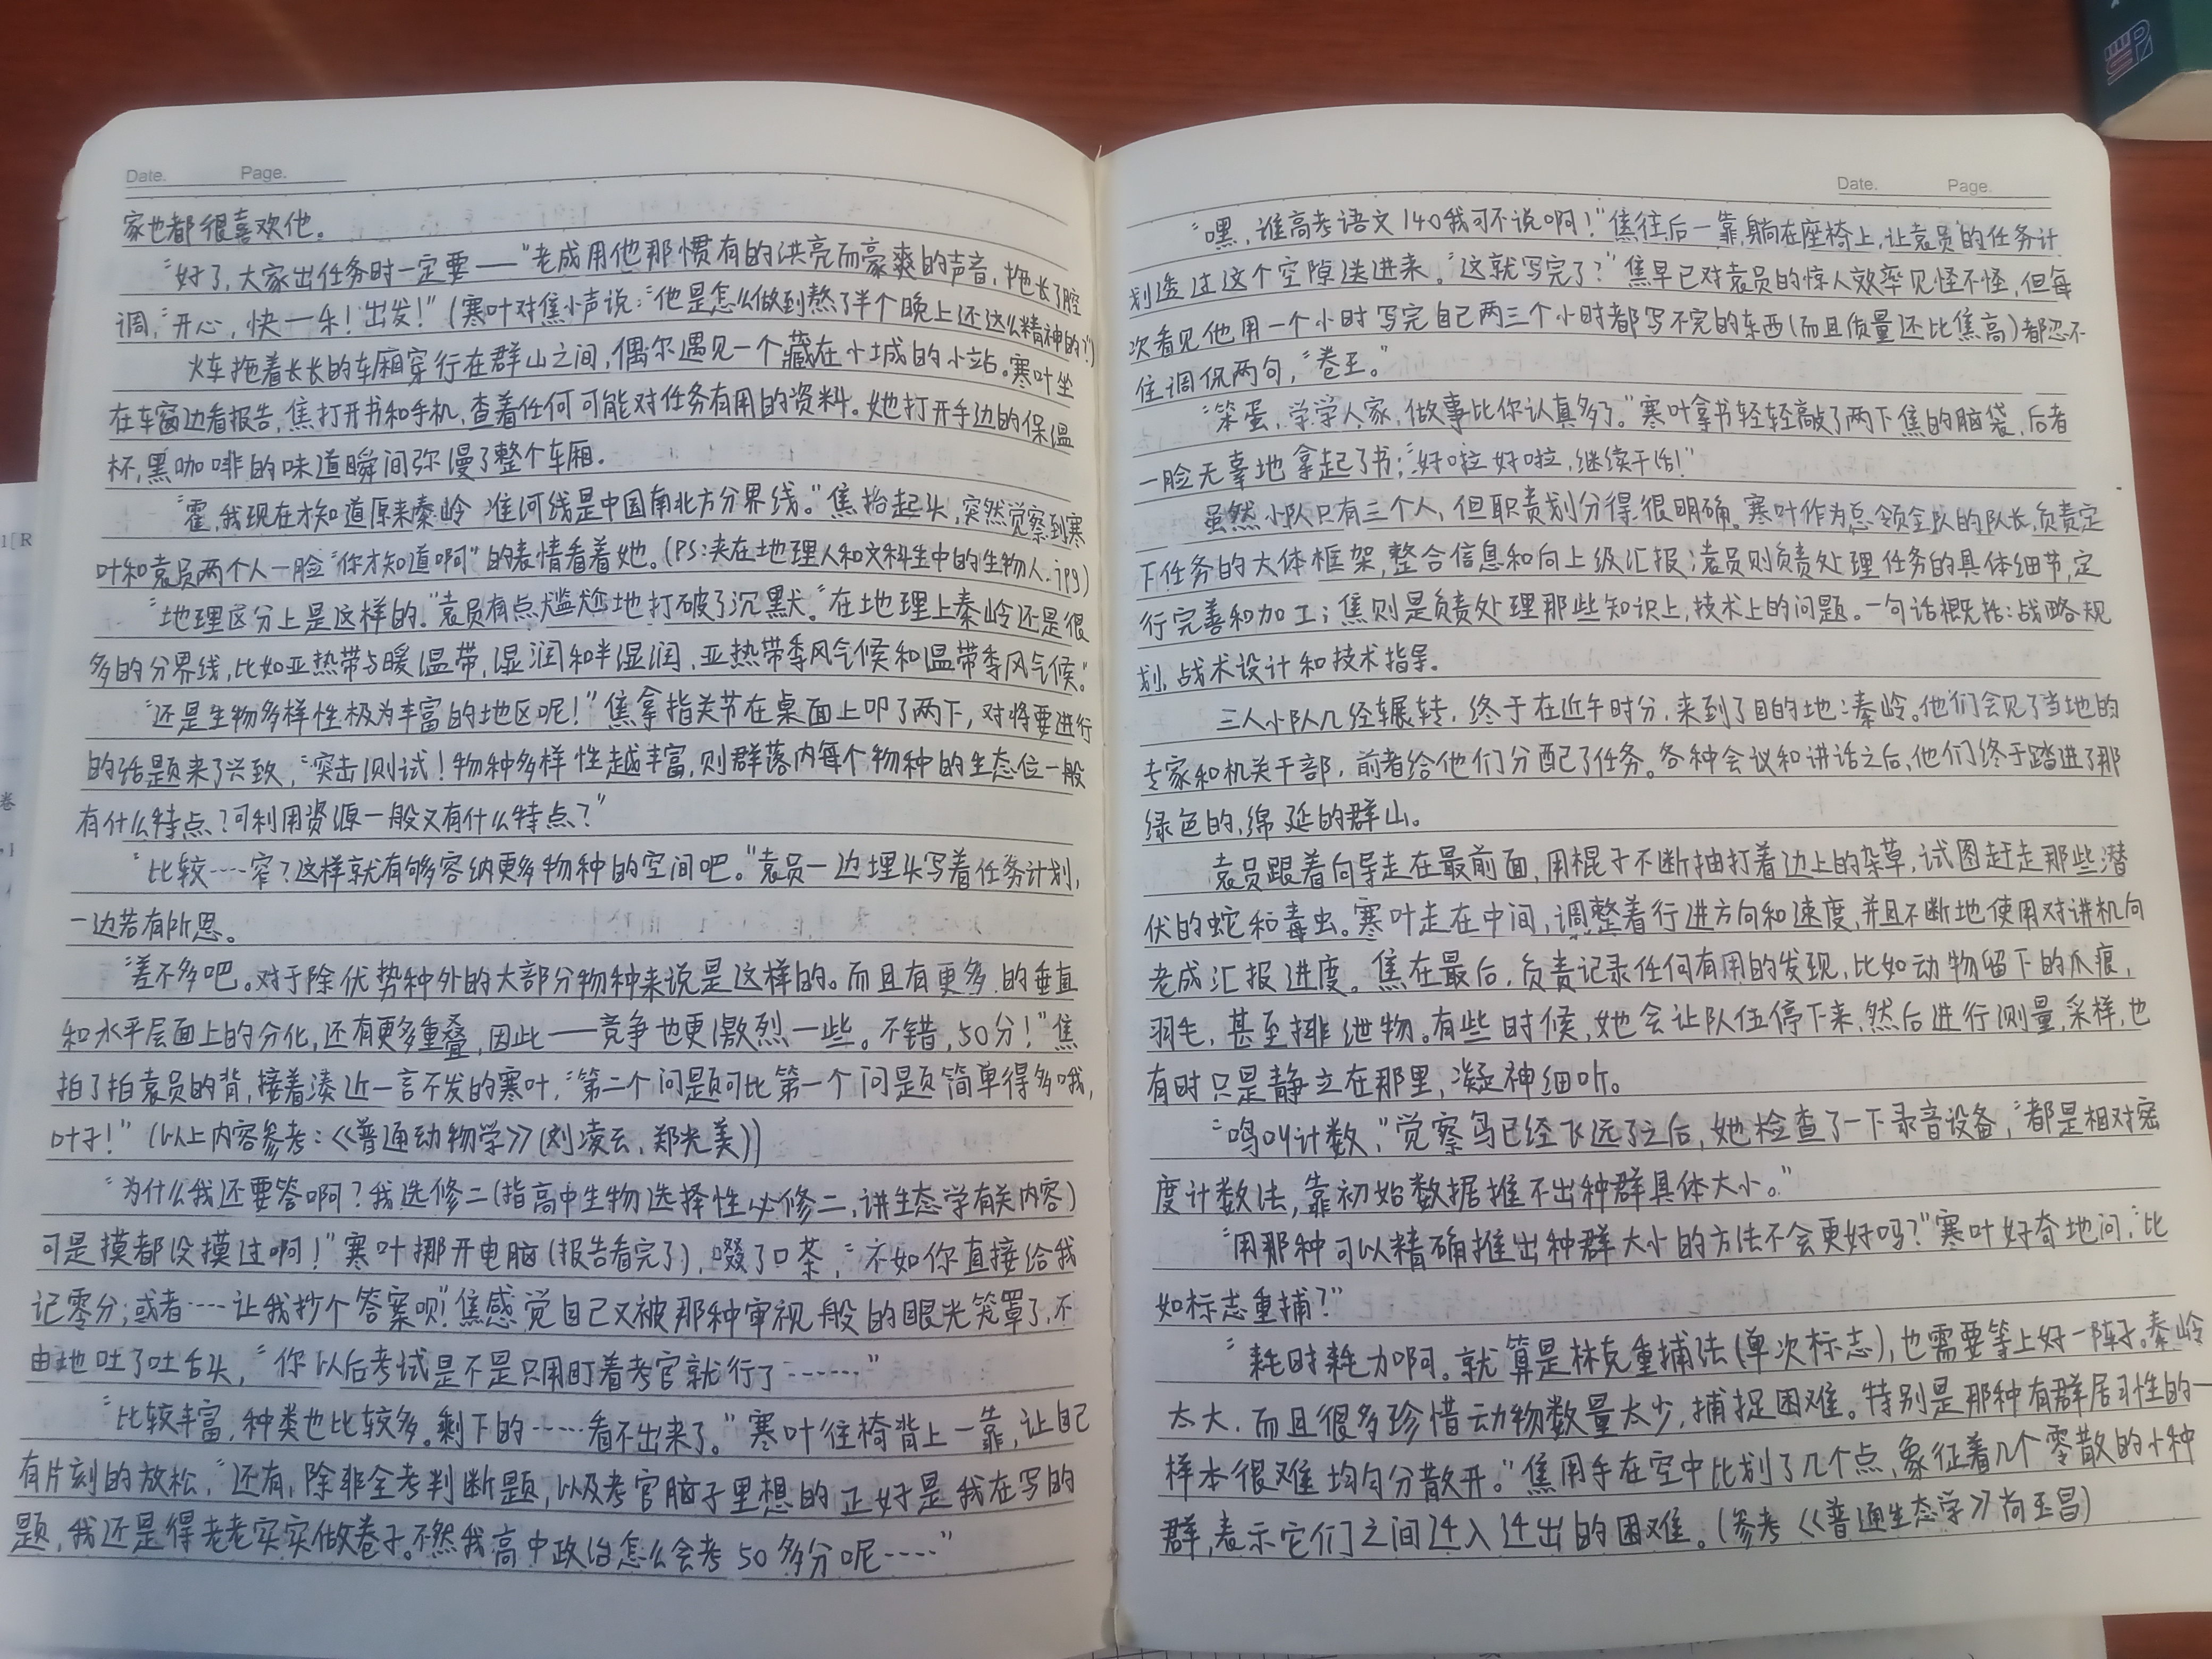 Date. Page.
家也都很喜欢他。
“好了,大家出任务时一定要——”老成用他那惯有的洪亮而豪爽的声音,拖长了腔
调,“开心,快一乐!出发!”(寒叶对焦小声说:“他是怎么做到熬了半个晚上还这么精神的?”)
火车拖着长长的车厢穿行在群山之间,偶尔遇见一个藏在小城的小站。寒叶坐
在车窗边看报告,焦打开书和手机,查着任何可能对任务有用的资料。她打开手边的保温
杯,黑咖啡的味道瞬间弥漫了整个车厢。
“霍,我现在才知道原来秦岭 淮河线是中国南北方分界线。”焦抬起头,突然觉察到寒
叶和袁员两个人一脸“你才知道啊”的表情看着她。(PS:夹在地理人和文科生中的生物人.jpg)
“地理区分上是这样的。”袁员有点尴尬地打破了沉默。“在地理上秦岭还是很
多的分界线,比如亚热带与暖温带,湿润和半湿润,亚热带季风气候和温带季风气候。”
“还是生物多样性极为丰富的地区呢!”焦拿指关节在桌面上叩了两下,对将要进行
的话题来了兴致,“突击测试!物种多样性越丰富,则群落内每个物种的生态位一般
有什么特点?可利用资源一般又有什么特点?”
“比较……窄?这样就有够容纳更多物种的空间吧。”袁员一边埋头写着任务计划,
一边若有所思。
“差不多吧。对于除优势种外的大部分物种来说是这样的。而且有更多的垂直
和水平层面上的分化,还有更多重叠,因此——竞争也更激烈一些。不错,50分!”焦
拍了拍袁员的背,接着凑近一言不发的寒叶,“第二个问题可比第一个问题简单得多哦,
叶子!”(以上内容参考:《普通动物学》(刘凌云,郑光美))
“为什么我还要答啊?我选修二(指高中生物选择性必修二,讲生态学有关内容)
可是摸都没摸过啊!”寒叶挪开电脑(报告看完了),啜了口茶,“不如你直接给我
记零分;或者……让我抄个答案呗!”焦感觉自己又被那种审视般的眼光笼罩了,不
由地吐了吐舌头,“你以后考试是不是只用盯着考官就行了……”
“比较丰富,种类也比较多。剩下的……看不出来了。”寒叶往椅背上一靠,让自己
有片刻的放松,“还有,除非全考判断题,以及考官脑子里想的正好是我在写的
题,我还是得老老实实做卷子。不然我高中政治怎么会考50多分呢……”
Date. Page.
“嘿,谁高考语文140我可不说啊!”焦往后一靠,躺在座椅上,让袁员的任务计
划透过这个空隙送进来。“这就写完了?”焦早已对袁员的惊人效率见怪不怪,但每
次看见他用一个小时写完自己两三个小时都写不完的东西(而且质量还比焦高)都忍不
住调侃两句,“卷王。”
“笨蛋,学学人家,做事比你认真多了。”寒叶拿书轻轻敲了两下焦的脑袋,后者
一脸无辜地拿起了书:“好啦好啦,继续干活!”
虽然小队只有三个人,但职责划分得很明确。寒叶作为总领全队的队长,负责定
下任务的大体框架,整合信息和向上级汇报;袁员则负责处理任务的具体细节,定
行完善和加工;焦则是负责处理那些知识上,技术上的问题。一句话概括:战略规
划,战术设计和技术指导。
三人小队几经辗转,终于在近午时分,来到了目的地:秦岭。他们会见了当地的
专家和机关干部,前者给他们分配了任务。各种会议和讲话之后,他们终于踏进了那
绿色的,绵延的群山。
袁员跟着向导走在最前面,用棍子不断抽打着边上的杂草,试图赶走那些潜
伏的蛇和毒虫。寒叶走在中间,调整着行进方向和速度,并且不断地使用对讲机向
老成汇报进度。焦在最后,负责记录任何有用的发现,比如动物留下的爪痕,
羽毛,甚至排泄物。有些时候,她会让队伍停下来,然后进行测量,采样,也
有时只是静立在那里,凝神细听。
“鸣叫计数,”觉察鸟已经飞远了之后,她检查了一下录音设备,“都是相对密
度计数法,靠初始数据推不出种群具体大小。”
“用那种可以精确推出种群大小的方法不会更好吗?”寒叶好奇地问,“比
如标志重捕?”
“耗时耗力啊。就算是林克重捕法(单次标志),也需要等上好一阵子。秦岭
太大,而且很多珍惜动物数量太少,捕捉困难。特别是那种有群居习性的——
样本很难均匀分散开。”焦用手在空中比划了几个点,象征着几个零散的小种
群,表示它们之间迁入迁出的困难。(参考《普通生态学》尚玉昌)